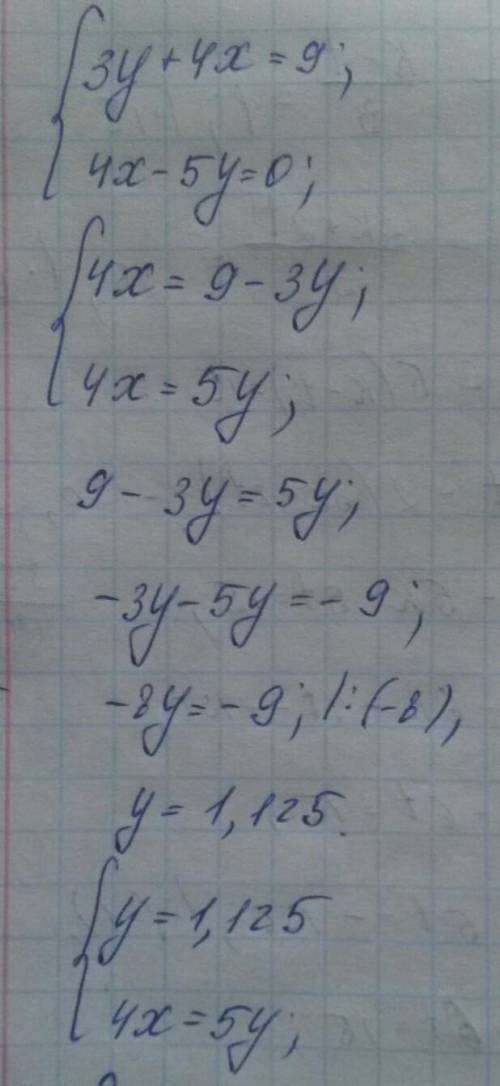 3y + 4x = 9;
4x - 5y = 0;
4x = 9 - 3y;
4x = 5y;
9 - 3y = 5y;
-3y - 5y = - 9;
-8y = - 9; |: (-8),
y = 1,125.
y = 1,125
4x = 5y;